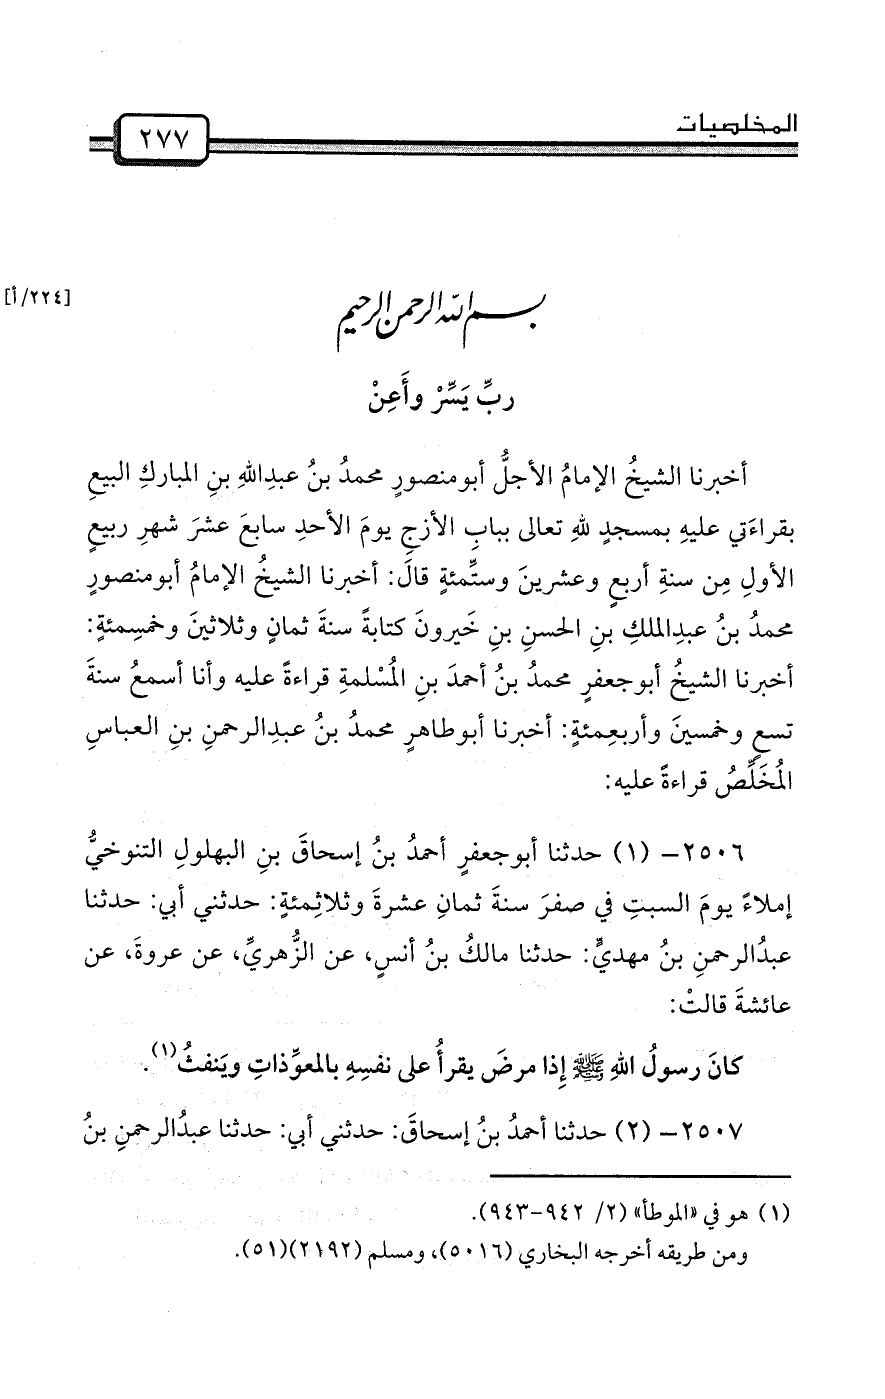 المخلصيات
٢٧٧
[٢٢٤/أ]
بسم الله الرحمن الرحيم
ربِّ يَسِّرْ وأَعِنْ
أخبرنا الشيخُ الإمامُ الأجلُّ أبومنصورٍ محمدُ بنُ عبدِاللهِ بنِ المباركِ البيعِ
بقراءَتي عليهِ بمسجدٍ للهِ تعالى ببابِ الأزجِ يومَ الأحدِ سابعَ عشرَ شهرِ ربيعٍ
الأولِ مِن سنةِ أربعٍ وعشرينَ وستِّمئةٍ قالَ: أخبرنا الشيخُ الإمامُ أبومنصورٍ
محمدُ بنُ عبدِالملكِ بنِ الحسنِ بنِ خَيرونَ كتابةً سنةَ ثمانٍ وثلاثينَ وخمسِمئةٍ:
أخبرنا الشيخُ أبوجعفرٍ محمدُ بنُ أحمدَ بنِ المُسْلمةِ قراءةً عليه وأنا أسمعُ سنةَ
تسعٍ وخمسينَ وأربعِمئةٍ: أخبرنا أبوطاهرٍ محمدُ بنُ عبدِالرحمنِ بنِ العباسِ
المُخَلِّصُ قراءةً عليه:
٢٥٠٦- (١) حدثنا أبوجعفرٍ أحمدُ بنُ إسحاقَ بنِ البهلولِ التنوخيُّ
إملاءً يومَ السبتِ في صفرَ سنةَ ثمانِ عشرةَ وثلاثِمئةٍ: حدثني أبي: حدثنا
عبدُالرحمنِ بنُ مهديٍّ: حدثنا مالكُ بنُ أنسٍ، عن الزُّهريِّ، عن عروةَ، عن
عائشةَ قالتْ:
كانَ رسولُ اللهِ ﷺ إِذا مرضَ يقرأُ على نفسِهِ بالمعوِّذاتِ ويَنفثُ(١).
٢٥٠٧- (٢) حدثنا أحمدُ بنُ إسحاقَ: حدثني أبي: حدثنا عبدُالرحمنِ بنُ
(١) هو في «الموطأ» (٢/ ٩٤٢-٩٤٣).
ومن طريقه أخرجه البخاري (٥٠١٦)، ومسلم (٢١٩٢)(٥١).